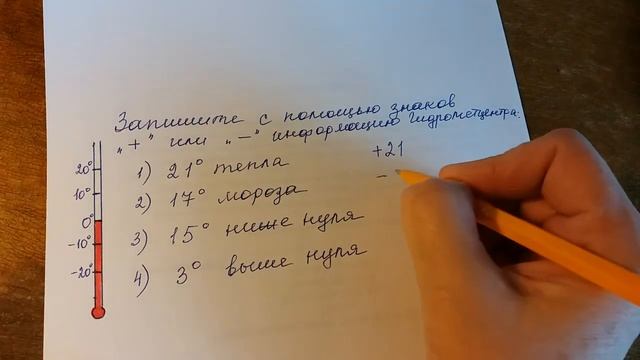 Запишите с помощью знаков
„+" или „−" информацию Гидрометцентра:
1) 21° тепла +21
2) 17° мороза −
3) 15° ниже нуля
4) 3° выше нуля
20°
10°
0°
-10°
-20°